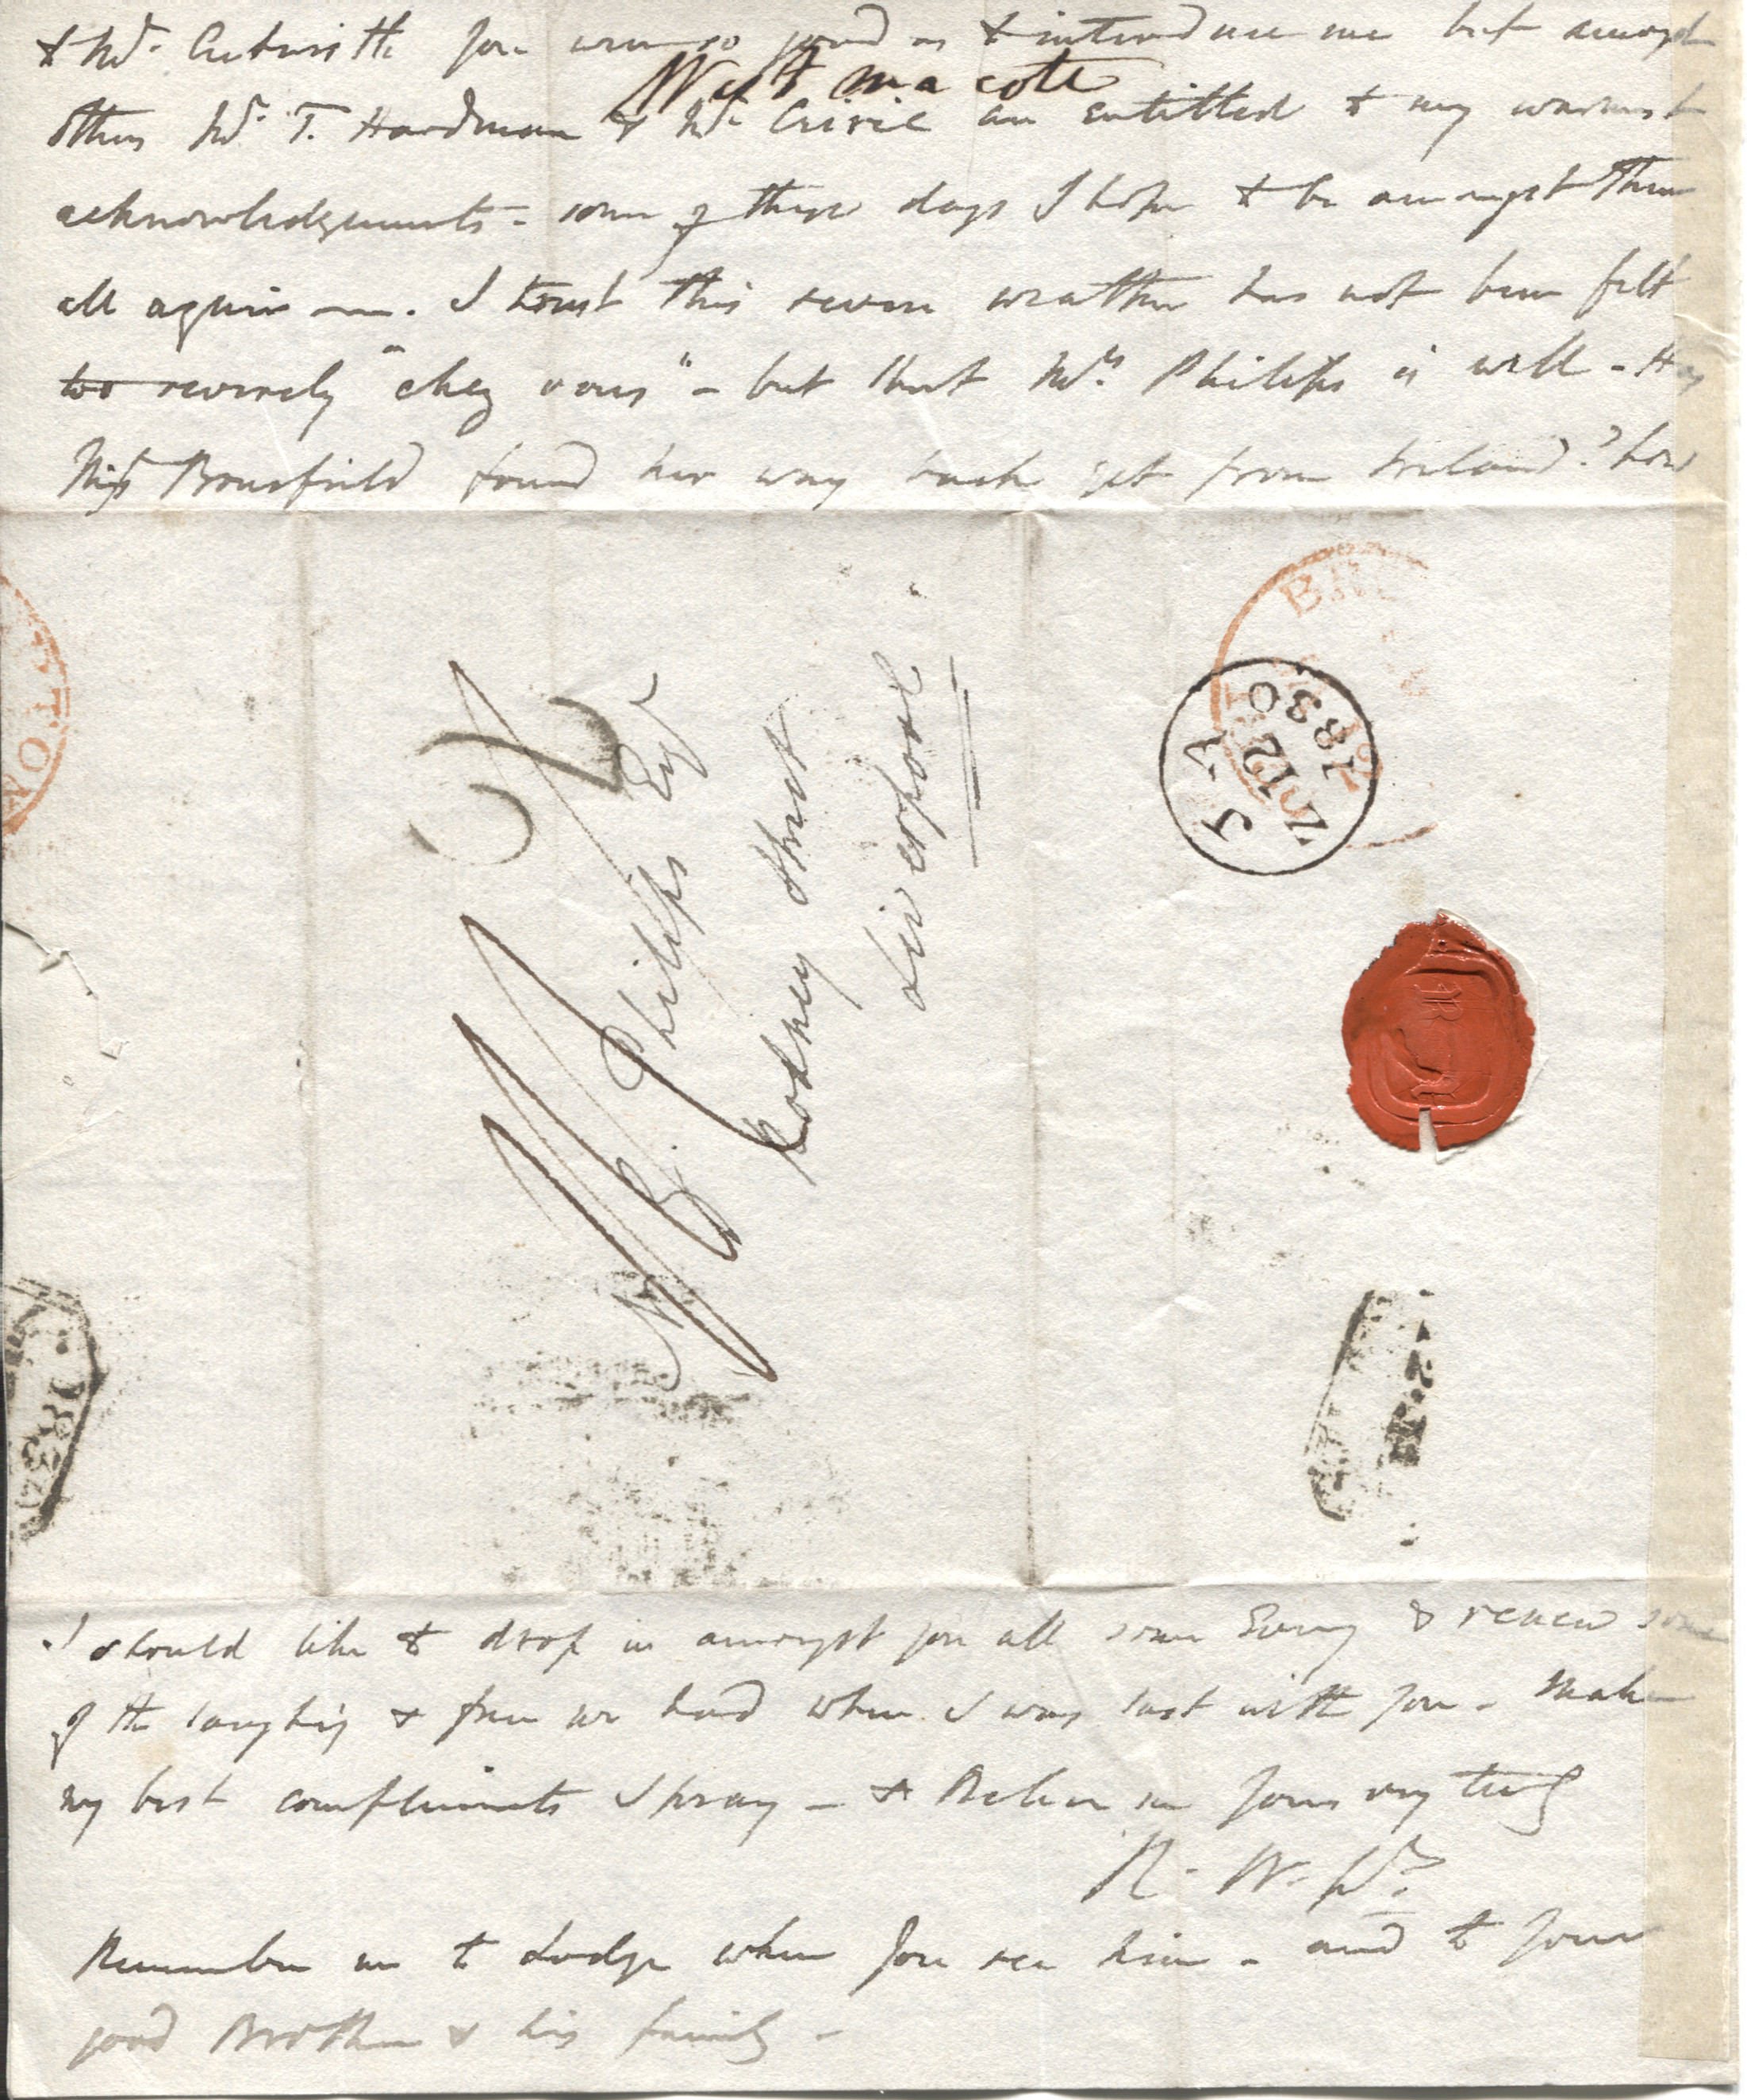 & Mr. Cutwith you were so good as to introduce me but amongst
Westmacott
others Mr. T. Hardman & Mr. are entitled to my warmest
acknowledgements - some of these days I hope to be amongst them
all again —. I trust this severe weather has not been felt
too severely "chez vous" - but that Mrs. Philips is well - Has
Miss Bousfield found her way back yet from Ireland? how
JA
12
1830
Philips Esqr
Rodney Street
Liverpool
183
I should like to drop in amongst you all some Eveng & renew some
of the laughing & fun we had when I was last with you - Make
my best compliments I pray - & Believe me yours very truly
R. W. Jr.
Remember me to Lodge when you see him - and to your
good Brother & his family -